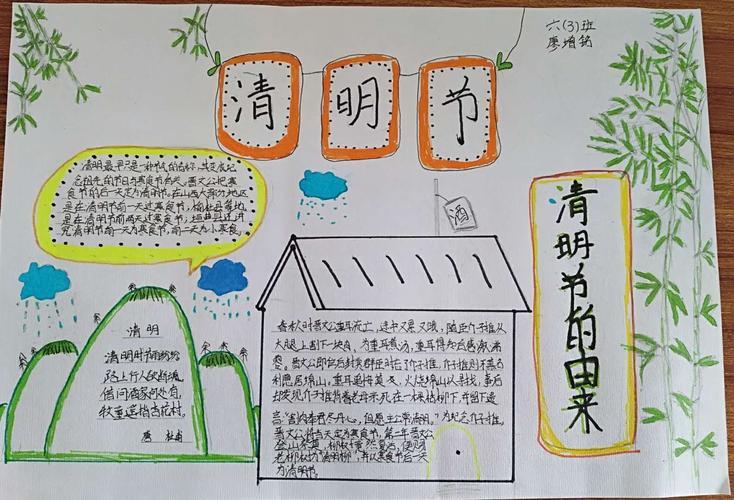 六(3)班
廖增铭
清明节
清明最早只是一种节气的名称,其变成纪
念祖先的节日与寒食节有关。晋文公把寒
食节的后一天定为清明节。在山西大部分地区
是在清明节前一天过寒食节,榆社县等地
是在清明节前两天过寒食节,垣曲县还讲
究清明节前一天为寒食节,前二天为小寒食。
酒
清明节的由来
清明
清明时节雨纷纷
路上行人欲断魂
借问酒家何处有
牧童遥指杏花村。
唐 杜甫
春秋时晋文公重耳流亡,途中又累又饿,随臣介子推从
大腿上割下一块肉,为重耳煮汤,重耳得知后感激
晋文公即位后封赏群臣时忘了介子推,介子推则
利愿居绵山,重耳追悔莫及,火烧绵山以寻找,事后
却发现介子推背靠老母死在一棵枯柳下,并留下遗
言"割肉奉君尽丹心,但愿主公常清明。"为纪念介子推,
晋文公将当天定为寒食节,第二年晋文公
登山祭奠
老柳树为"清明柳",并以寒食节后一天
为清明节。